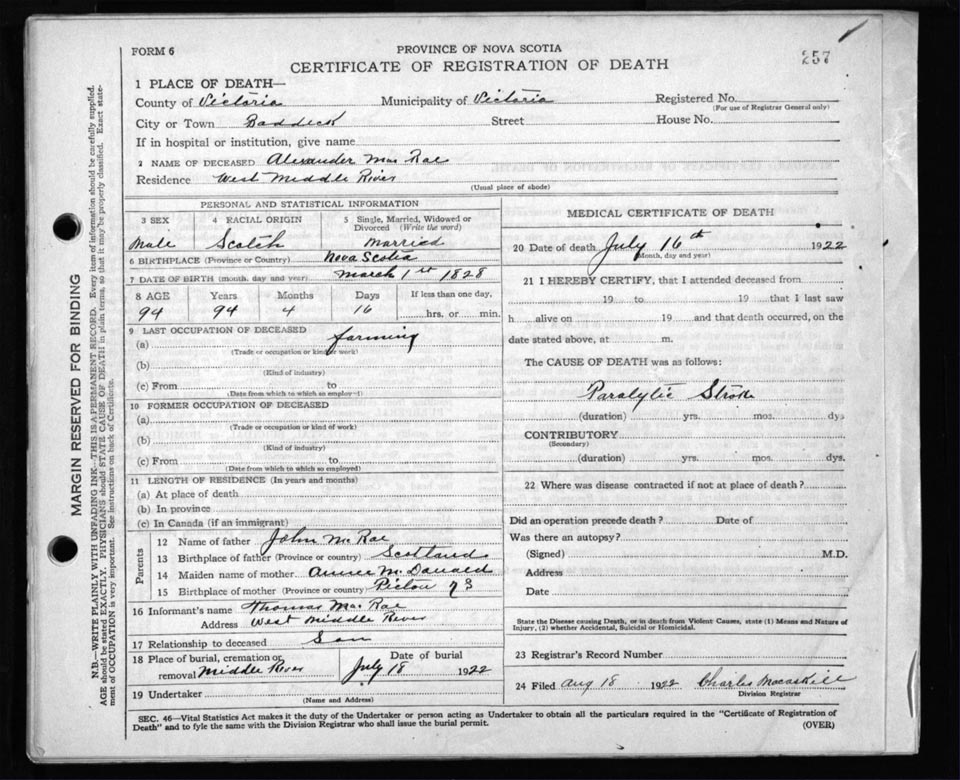 FORM 6
PROVINCE OF NOVA SCOTIA
257
CERTIFICATE OF REGISTRATION OF DEATH
1 PLACE OF DEATH—
County of Victoria Municipality of Victoria Registered No.
(For use of Registrar General only)
City or Town Baddeck Street House No.
If in hospital or institution, give name
2 NAME OF DECEASED Alexander Mac Rae
Residence West Middle River
(Usual place of abode)
PERSONAL AND STATISTICAL INFORMATION
3 SEX 4 RACIAL ORIGIN 5 Single, Married, Widowed or Divorced (Write the word)
Male Scotch Married
6 BIRTHPLACE (Province or Country) Nova Scotia
7 DATE OF BIRTH (month, day and year) March 1st 1828
8 AGE Years Months Days If less than one day,
94 94 4 16 hrs. or min.
9 LAST OCCUPATION OF DECEASED
(a) farming
(Trade or occupation or kind of work)
(b)
(Kind of industry)
(c) From to
(Date from which to which so employed)
10 FORMER OCCUPATION OF DECEASED
(a)
(Trade or occupation or kind of work)
(b)
(Kind of industry)
(c) From to
(Date from which to which so employed)
11 LENGTH OF RESIDENCE (In years and months)
(a) At place of death
(b) In province
(c) In Canada (if an immigrant)
Parents
12 Name of father John McRae
13 Birthplace of father (Province or country) Scotland
14 Maiden name of mother Annie McDonald
15 Birthplace of mother (Province or country) Pictou NS
16 Informant's name Thomas MacRae
Address West Middle River
17 Relationship to deceased Son
18 Place of burial, cremation or removal Middle River Date of burial July 18 1922
19 Undertaker
(Name and Address)
MEDICAL CERTIFICATE OF DEATH
20 Date of death July 16th 1922
(Month, day and year)
21 I HEREBY CERTIFY, that I attended deceased from
19 to 19 that I last saw
h alive on 19 and that death occurred, on the
date stated above, at m.
The CAUSE OF DEATH was as follows:
Paralytic Stroke
(duration) yrs. mos. dys
CONTRIBUTORY
(Secondary)
(duration) yrs. mos. dys.
22 Where was disease contracted if not at place of death?
Did an operation precede death? Date of
Was there an autopsy?
(Signed) M.D.
Address
Date
State the Disease causing Death, or in death from Violent Causes, state (1) Means and Nature of
Injury, (2) whether Accidental, Suicidal or Homicidal.
23 Registrar's Record Number
24 Filed Aug 18 1922 Charles Macaskill
Division Registrar
SEC. 46—Vital Statistics Act makes it the duty of the Undertaker or person acting as Undertaker to obtain all the particulars required in the "Certificate of Registration of
Death" and to fyle the same with the Division Registrar who shall issue the burial permit. (OVER)
MARGIN RESERVED FOR BINDING
N.B.—WRITE PLAINLY WITH UNFADING INK—THIS IS A PERMANENT RECORD. Every item of information should be carefully supplied.
AGE should be stated EXACTLY. PHYSICIANS should STATE CAUSE OF DEATH in plain terms, so that it may be properly classified. Exact state-
ment of OCCUPATION is very important. See instructions on back of Certificate.